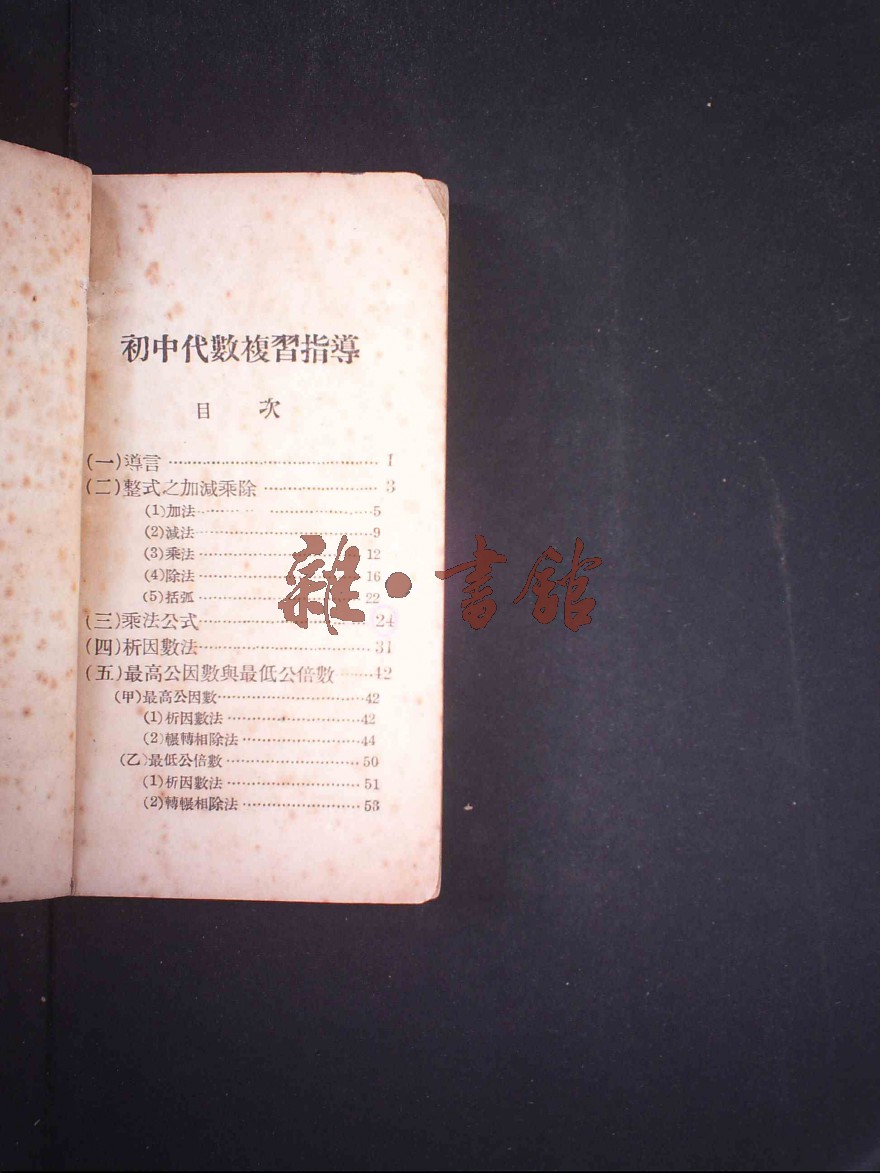 初中代數複習指導
目 次
(一)導言 ……………………………… 1
(二)整式之加減乘除 ……………… 3
(1)加法……………………5
(2)減法……………………9
(3)乘法……………………12
(4)除法……………………16
(5)括弧……………………22
(三)乘法公式……………………24
(四)析因數法……………………31
(五)最高公因數與最低公倍數……42
(甲)最高公因數……………………42
(1)析因數法……………………42
(2)輾轉相除法……………………44
(乙)最低公倍數……………………50
(1)析因數法……………………51
(2)轉輾相除法……………………53
雜·書館